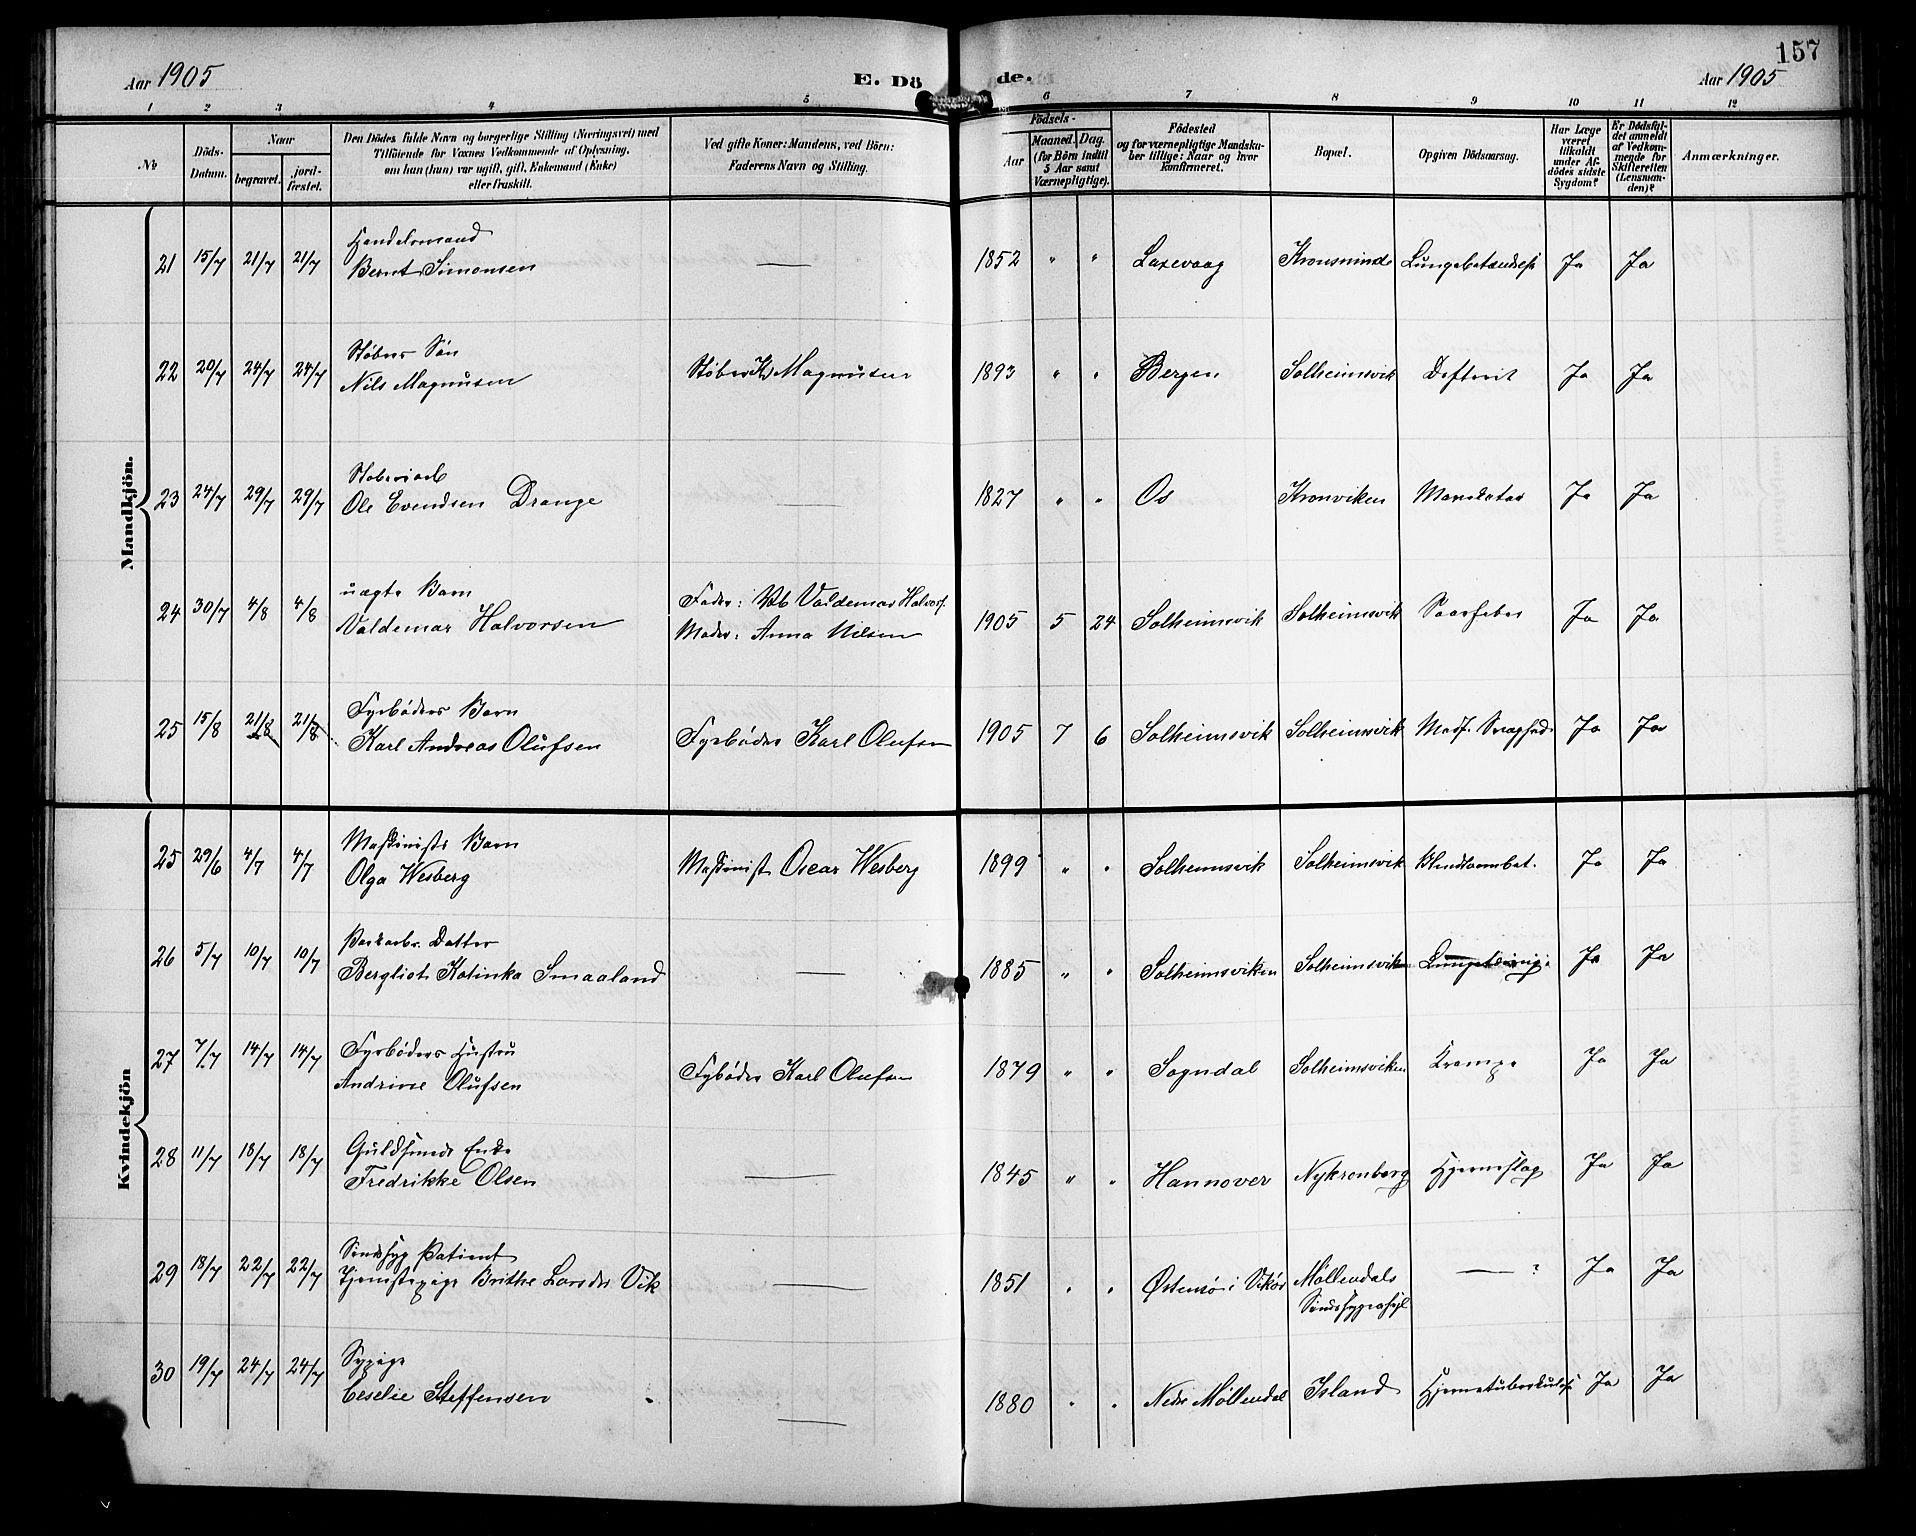 157
Aar 1905
E. Döde.
Aar 1905
1 2 3 4 5 6 7 8 9 10 11 12
No
Döds-Datum.
Naar
begravet.
jordfæstet.
Den Dödes fulde Navn og borgerlige Stilling (Næringsvei) med
Tilföiende for Voxnes Vedkommende af Oplysning,
om hun (hun) var ugift, gift, Enkemand (Enke)
eller fraskilt.
Ved gifte Koner: Mandens, ved Börn:
Faderens Navn og Stilling.
Födsels-
Aar
Maaned. Dag.
(for Börn indtil
5 Aar samt
Værnepligtige).
Födested
og for værnepligtige Mandskaber tillige: Naar og hvor
konfirmeret.
Bopæl.
Opgiven Dödsaarsag.
Har Læge
været
tilkaldt
under Afdödes sidste
Sygdom?
Er Dödsfaldet anmeldt
af Vedkommende for
Skifteretten
(Lensmanden)?
Anmærkninger.
Mandkjön.
21 15/7 21/7 21/7 Handelsmand
Bernt Simonsen — 1852 " " Laxevaag Kronsminde Lungebetændelse Ja Ja
22 20/7 24/7 24/7 Støbers Søn
Nils Magnusen Støber Magnusen 1893 " " Bergen Solheimsvik Difterit Ja Ja
23 24/7 29/7 29/7
Ole Evendsen Drange — 1827 " " Os Kronviken Ja Ja
24 30/7 4/8 4/8 uægte Barn
Valdemar Halvorsen Fader: Valdemar Halvors.
Moder: Anna Nilsen 1905 5 24 Solheimsvik Solheimsvik Ja Ja
25 15/8 21/8 21/8 Fyrbøders Barn
Karl Andreas Olufsen Fyrbøder Karl Olufsen 1905 7 6 Solheimsvik Solheimsvik Medf. Svaghed Ja Ja
Kvindekjön
25 29/6 4/7 4/7 Maskinists Barn
Olga Wesberg Maskinist Oscar Wesberg 1899 " " Solheimsvik Solheimsvik Blindtarmbet. Ja Ja
26 5/7 10/7 10/7 Datter
Bergliot Katinka Smaaland — 1885 " " Solheimsviken Solheimsvik Ja Ja
27 7/7 14/7 14/7 Fyrbøders Hustru
Andrine Olufsen Fybøder Karl Olufsen 1879 " " Sogndal Solheimsviken Krampe Ja Ja
28 11/7 18/7 18/7 Guldsmeds Enke
Fredrikke Olsen — 1845 " " Hannover Nykronborg Hjerneslag Ja Ja
29 18/7 22/7 22/7 Sindssyg Patient
Tjenestepige Brithe Larsdr Vik — 1851 " " Østensø i Vikør Møllendals
Sindssygeasyl — ? Ja Ja
30 19/7 24/7 24/7 Sypige
Ceselie Steffensen — 1880 " " Nedre Møllendal Island Hjernetuberkulose Ja Ja